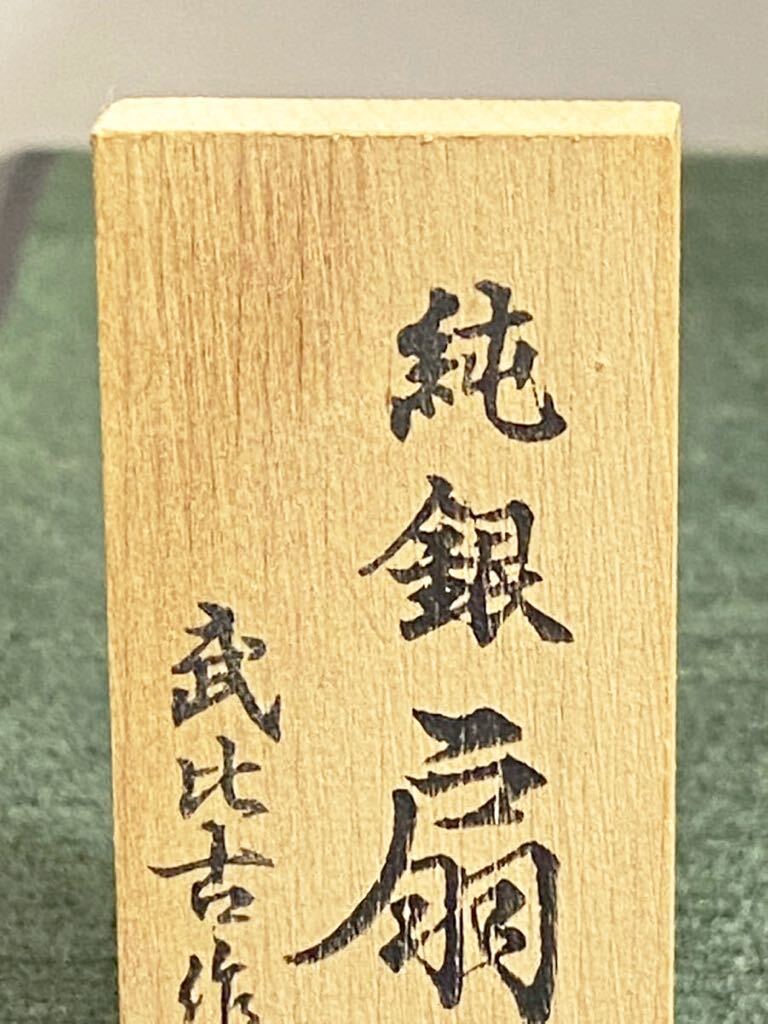 純銀扇
武比古作